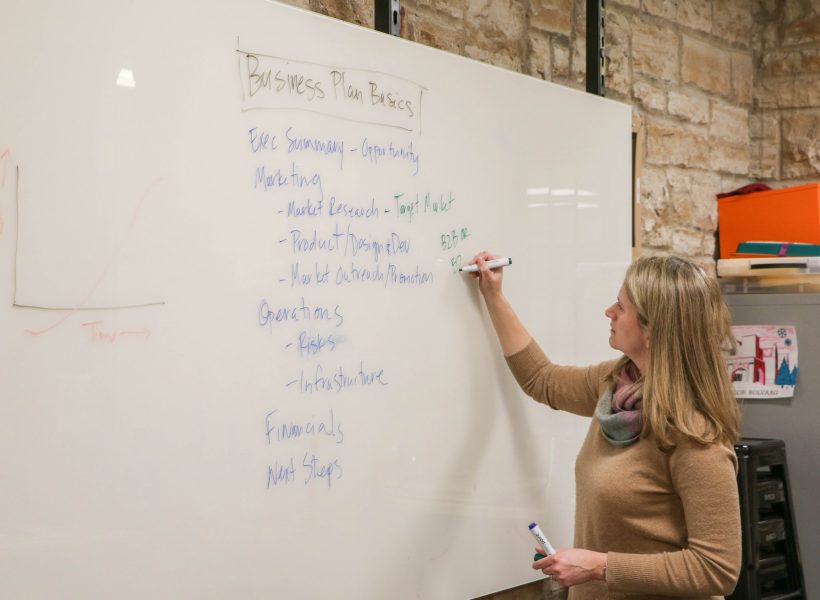 Business Plan Basics
Exec Summary - Opportunity
Marketing
- Market Research - Target Market
- Product/Design & Dev
B2B or
B2
- Market Outreach/Promotion
Operations
- Risks
- Infrastructure
Financials
Next Steps
Time